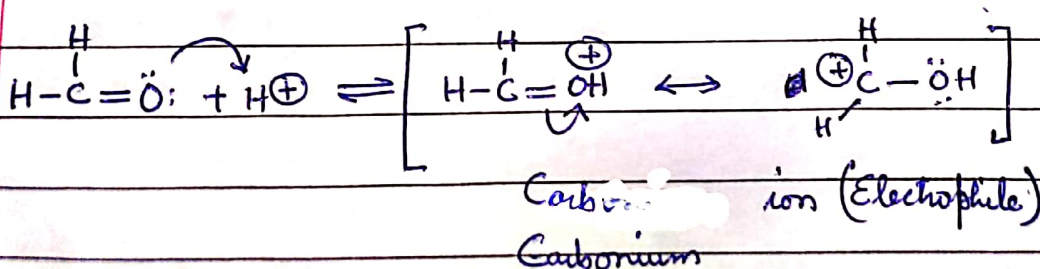 H H H
H-C=Ö: + H⊕ ⇌ [ H-C=OH ⊕ ↔ ⊕C-ÖH ]
H
ion (Electrophile)
Carbonium